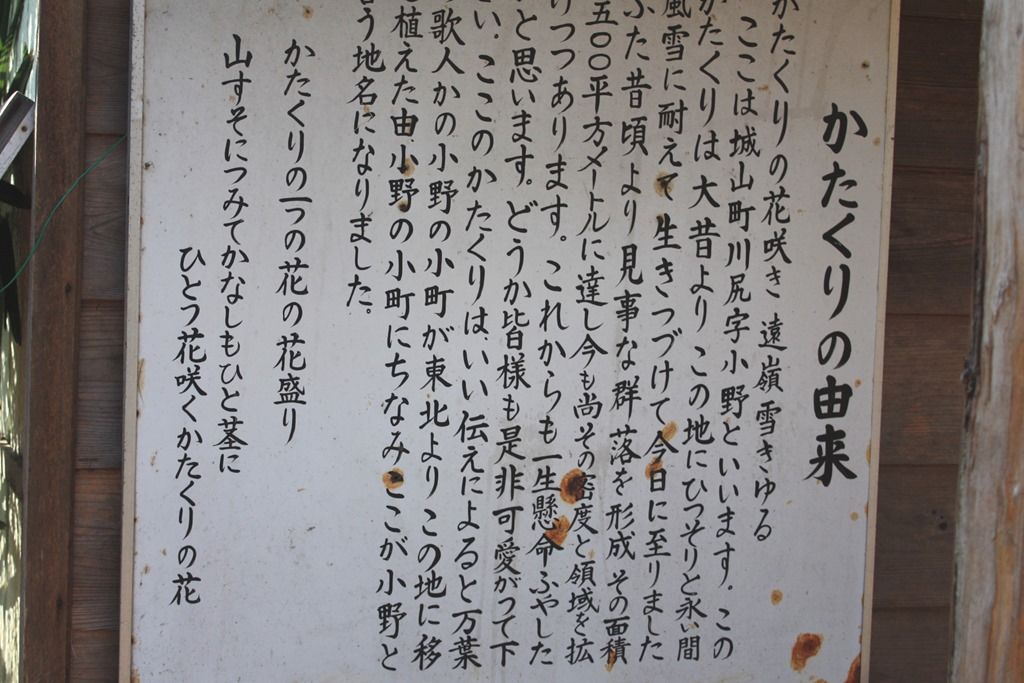 かたくりの由来
かたくりの花咲き 遠嶺雪きゆる
ここは城山町川尻字小野といいます。この
かたくりは大昔よりこの地にひっそりと永い間
風雪に耐えて生きつづけて今日に至りました
ふた昔頃より見事な群落を形成 その面積
五〇〇平方メートルに達し今も尚その密度と領域を拡
けつつあります。これからも一生懸命ふやした
と思います。どうか皆様も是非可愛がって下
い。ここのかたくりは、いい伝えによると万葉
歌人かの小野の小町が東北よりこの地に移
植えた由小野の小町にちなみここが小野と
う地名になりました。
かたくりの一つの花の花盛り
山すそにつみてかなしもひと茎に
ひとつ花咲くかたくりの花